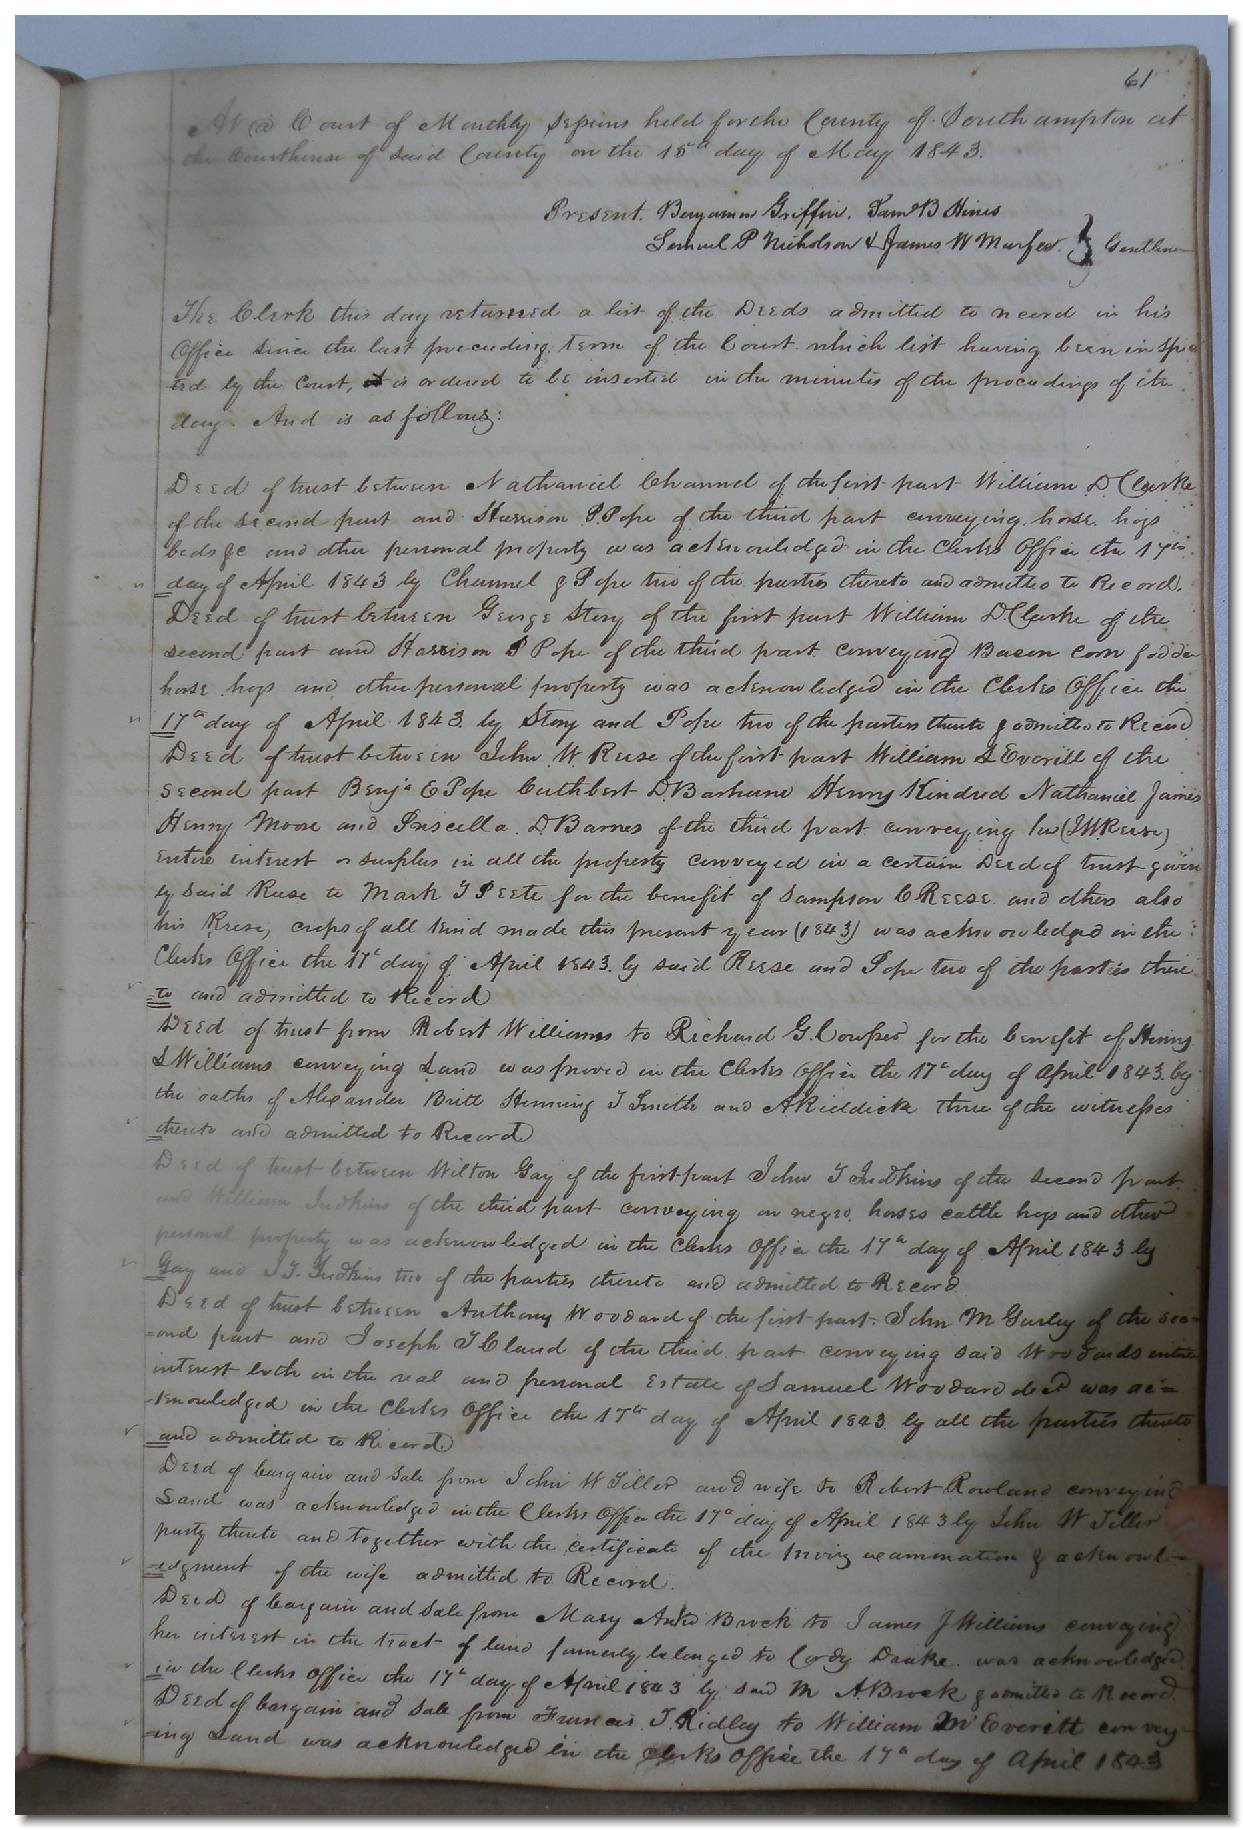 61
At a Court of Monthly Sessions held for the County of Southampton at
the Courthouse of said County on the 15th day of May 1843.
Present. Benjamin Griffin. Saml B Hines
Samuel P Nicholson & James W Murfee. } Gentlemen
The Clerk this day returned a list of the Deeds admitted to record in his
Office since the last preceeding term of the Court which list having been inspec
-ted by the Court, it is ordered to be inserted in the minutes of the proceedings of the
day. And is as follows:
Deed of trust between Nathaniel Channel of the first part William D. Clarke
of the second part and Harrison P. Pope of the third part conveying horse hogs
beds &c and other personal property was acknowledged in the Clerks Office the 17th
day of April 1843 by Channel & Pope two of the parties thereto and admitted to Record.
Deed of trust between George Story of the first part William D. Clarke of the
second part and Harrison P Pope of the third part conveying Bacon corn fodder
horse hogs and other personal property was acknowledged in the Clerks Office the
17th day of April 1843 by Story and Pope two of the parties thereto & admitted to Record
Deed of trust between John W. Reese of the first part William S Everitt of the
second part Benja E Pope Cuthbert D. Barham Henry Kindred Nathaniel James
Henry Moore and Priscilla D Barnes of the third part conveying his (JW Reese)
entire interest or surplus in all the property conveyed in a certain Deed of trust given
by said Reese to Mark T Peete for the benefit of Sampson C Reese and others also
his Reese, crops of all kind made this present year (1843) was acknowledged in the
Clerks Office the 17th day of April 1843. by said Reese and Pope two of the parties there
to and admitted to Record
Deed of trust from Robert Williams to Richard G. Cowper for the benefit of Henry
S Williams conveying Land was proved in the Clerks Office the 17th day of April 1843. by
the oaths of Alexander Britt Henning T Smith and A Riddick three of the witnesses
thereto and admitted to Record
Deed of trust between Wilton Gay of the first part John T Judkins of the second part
and William Judkins of the third part conveying on negro, horses cattle hogs and other
personal property was acknowledged in the Clerks Office the 17th day of April 1843 by
Gay and J T. Judkins two of the parties thereto and admitted to Record
Deed of trust between Anthony Woodard of the first part. John M Gurley of the sec=
=ond part and Joseph T Claud of the third part conveying said Woodards entire
interest both in the real and personal Estate of Samuel Woodard decd was ac=
-knowledged in the Clerks Office the 17th day of April 1843 by all the parties thereto
and admitted to Record
Deed of bargain and sale from John W Tiller and wife to Robert Rowland conveying
Land was acknowledged in the Clerks Office the 17th day of April 1843 by John W Tiller
party thereto and together with the certificate of the privy examination & acknowl-
=edgment of the wife admitted to Record.
Deed of bargain and sale from Mary Ann Brock to James J Williams conveying
her interest in the tract of land formerly belonged to Cordy Drake was acknowledged
in the Clerks Office the 17th day of April 1843 by said M A. Brock & admitted to Record
Deed of bargain and sale from Francis T. Ridley to William M Everitt convey-
=ing Land was acknowledged in the Clerks Office the 17th day of April 1843